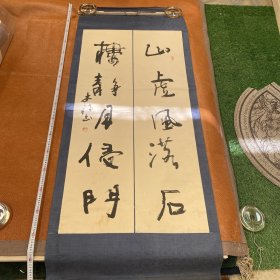 山虚風落石
樓静月侵門